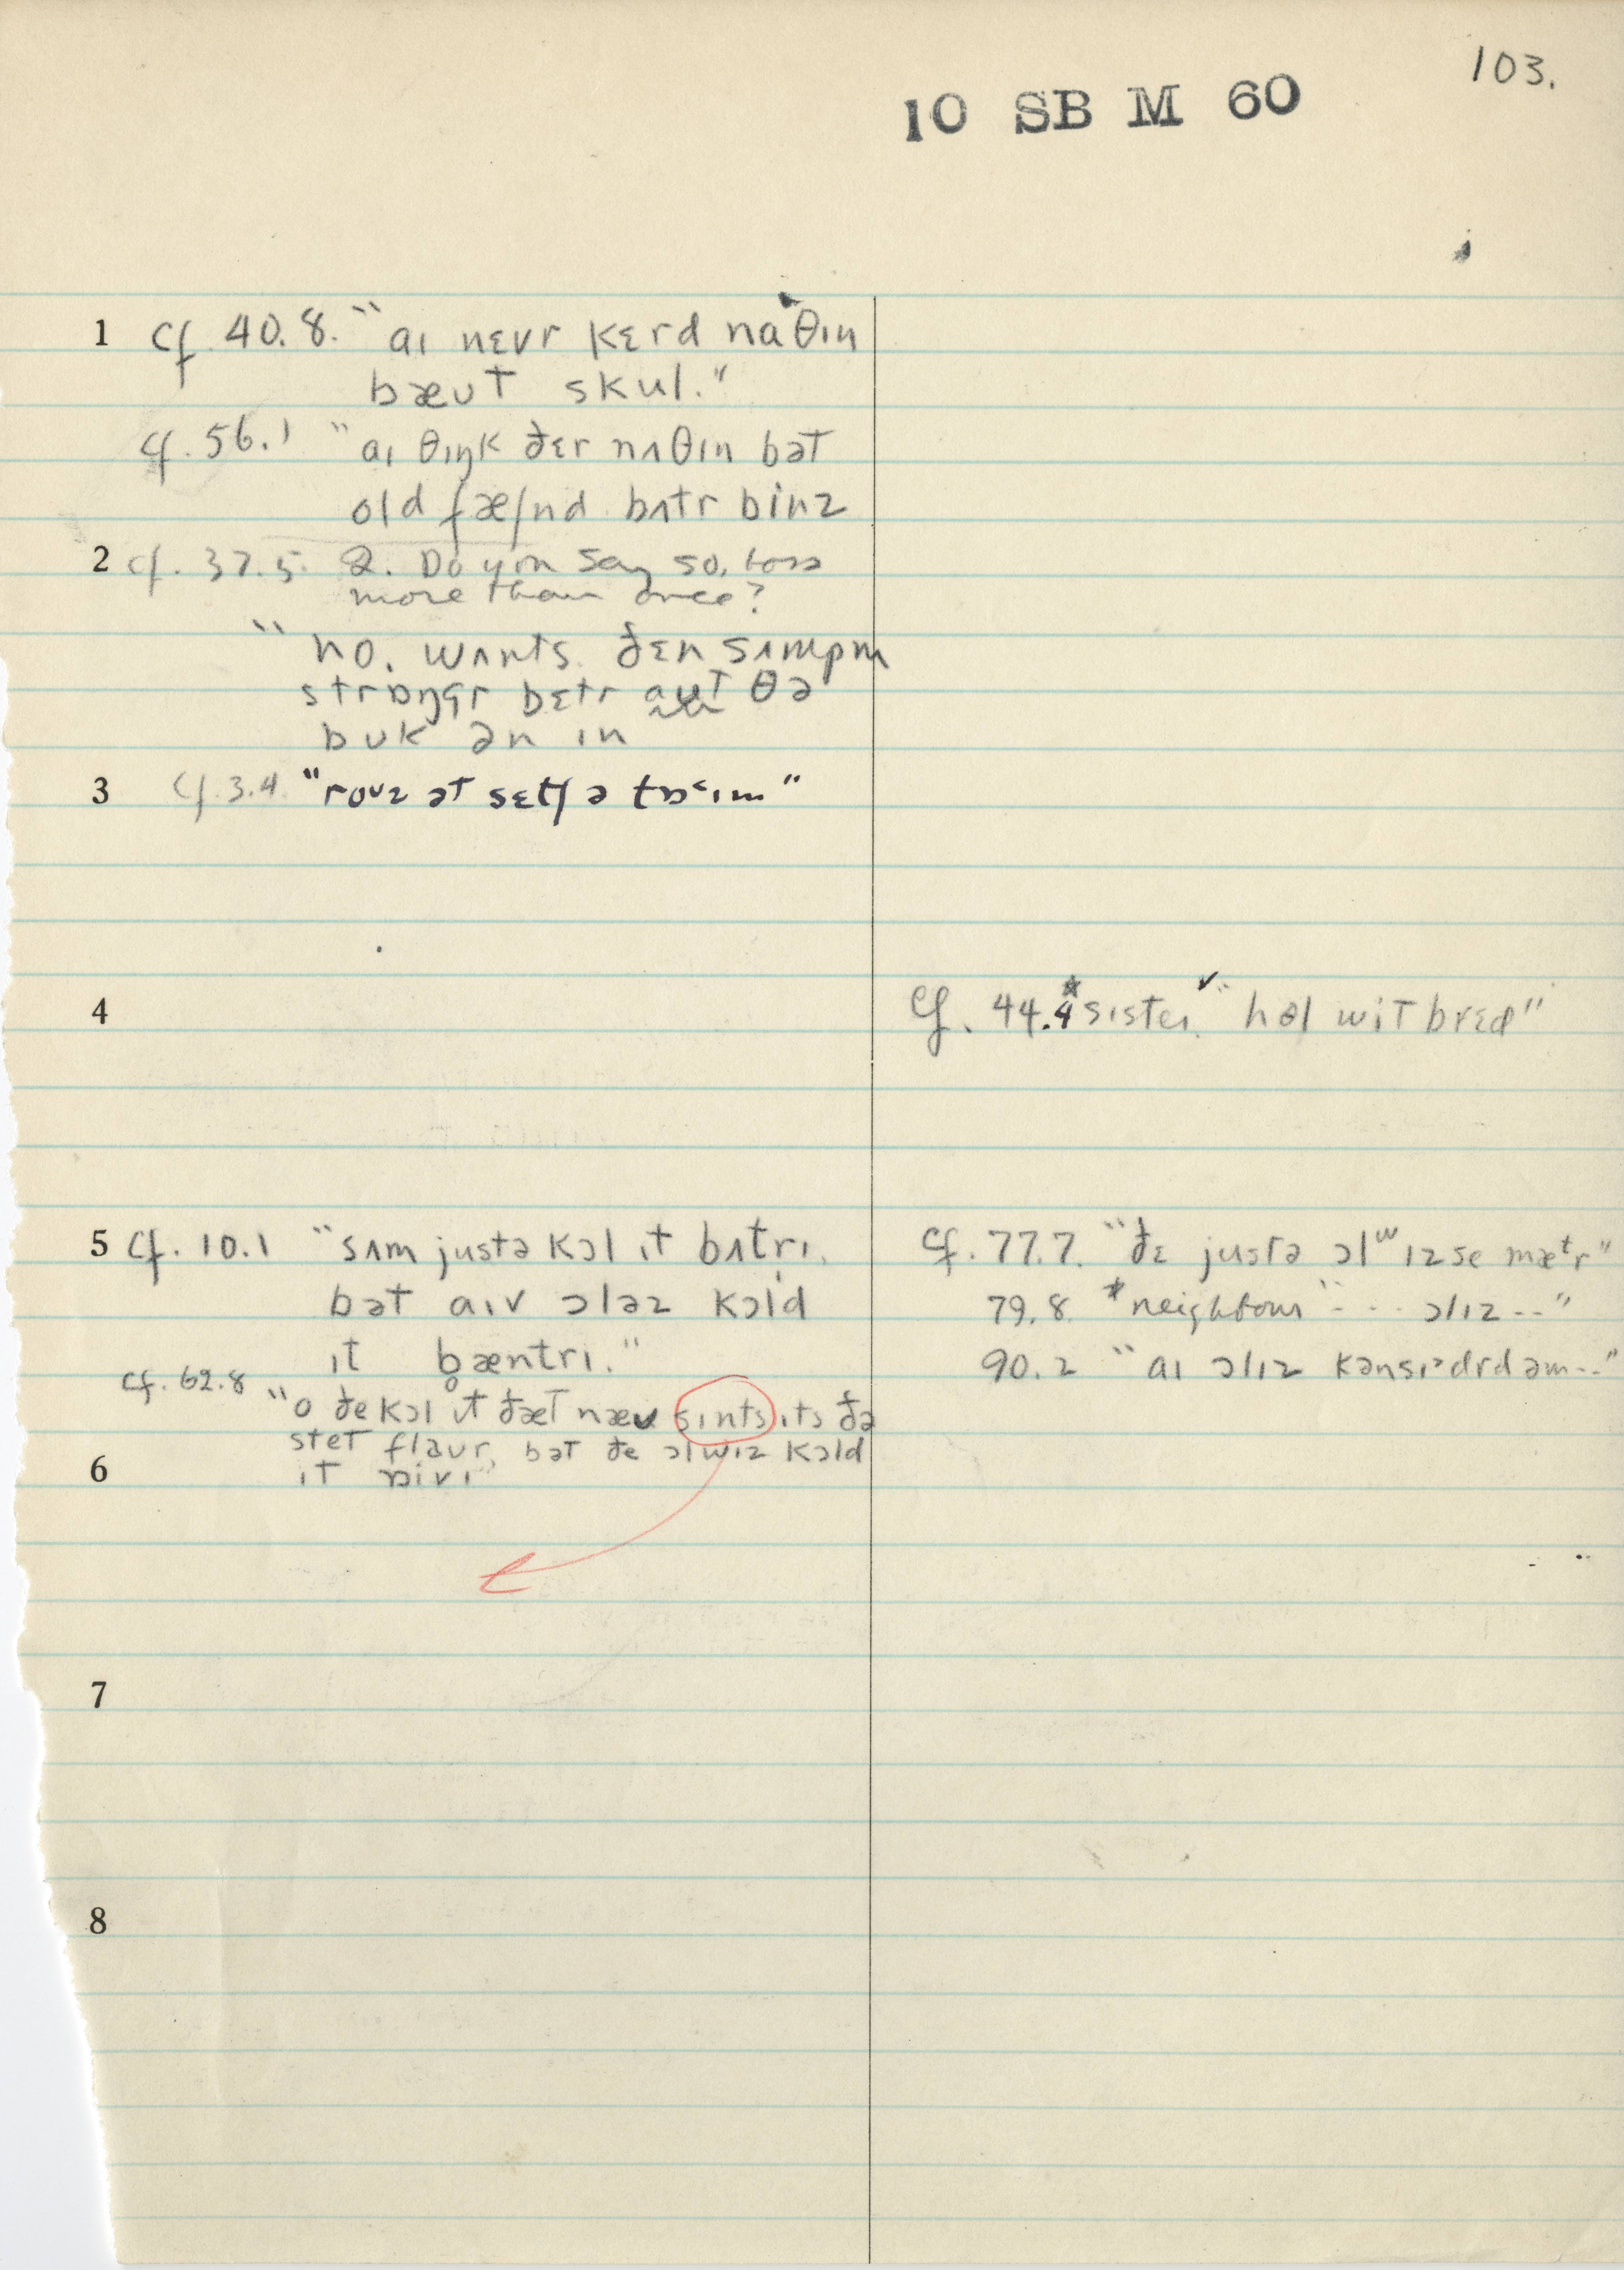 103.
10 SB M 60
1 cf. 40.8. "aɪ nɛvr kɛrd naˆθɪn
bæʊt skul."
cf. 56.1 "aɪ θɪŋk ðɛr nʌθɪn bət
old fæʃnd bʌtr binz
2 cf. 37.5. Q. Do you say so, boss
more than once?
"no. wʌnts. ðɛn sʌmpm
strɒŋgr bɛtr aʊt θə
bʊk ən ɪn
3 cf. 3.4. "roʊz ət sɛtʃ ə tɒ˂ɪm"
4 cf. 44.4 *sister "həl wit brɛd"
5 cf. 10.1 "sʌm justə kɔl ɪt bʌtrɪ.
bət aɪv ɔləz kɔld
ɪt bæntrɪ."
cf. 62.8 "o ðe kɔl ɪt ðæt næʊ sɪnts ɪts ðə
stet flaʊr, bət ðe ɔlwɪz kɔld
6 ɪt ɒivɪ"
cf. 77.7. "ðɛ justə ɔlʷɪz se mæᵗr"
79.8. *neighbour "- - - ɔlɪz --"
90.2 "aɪ ɔlɪz kənsɪᵊdrd əm--"
7
8